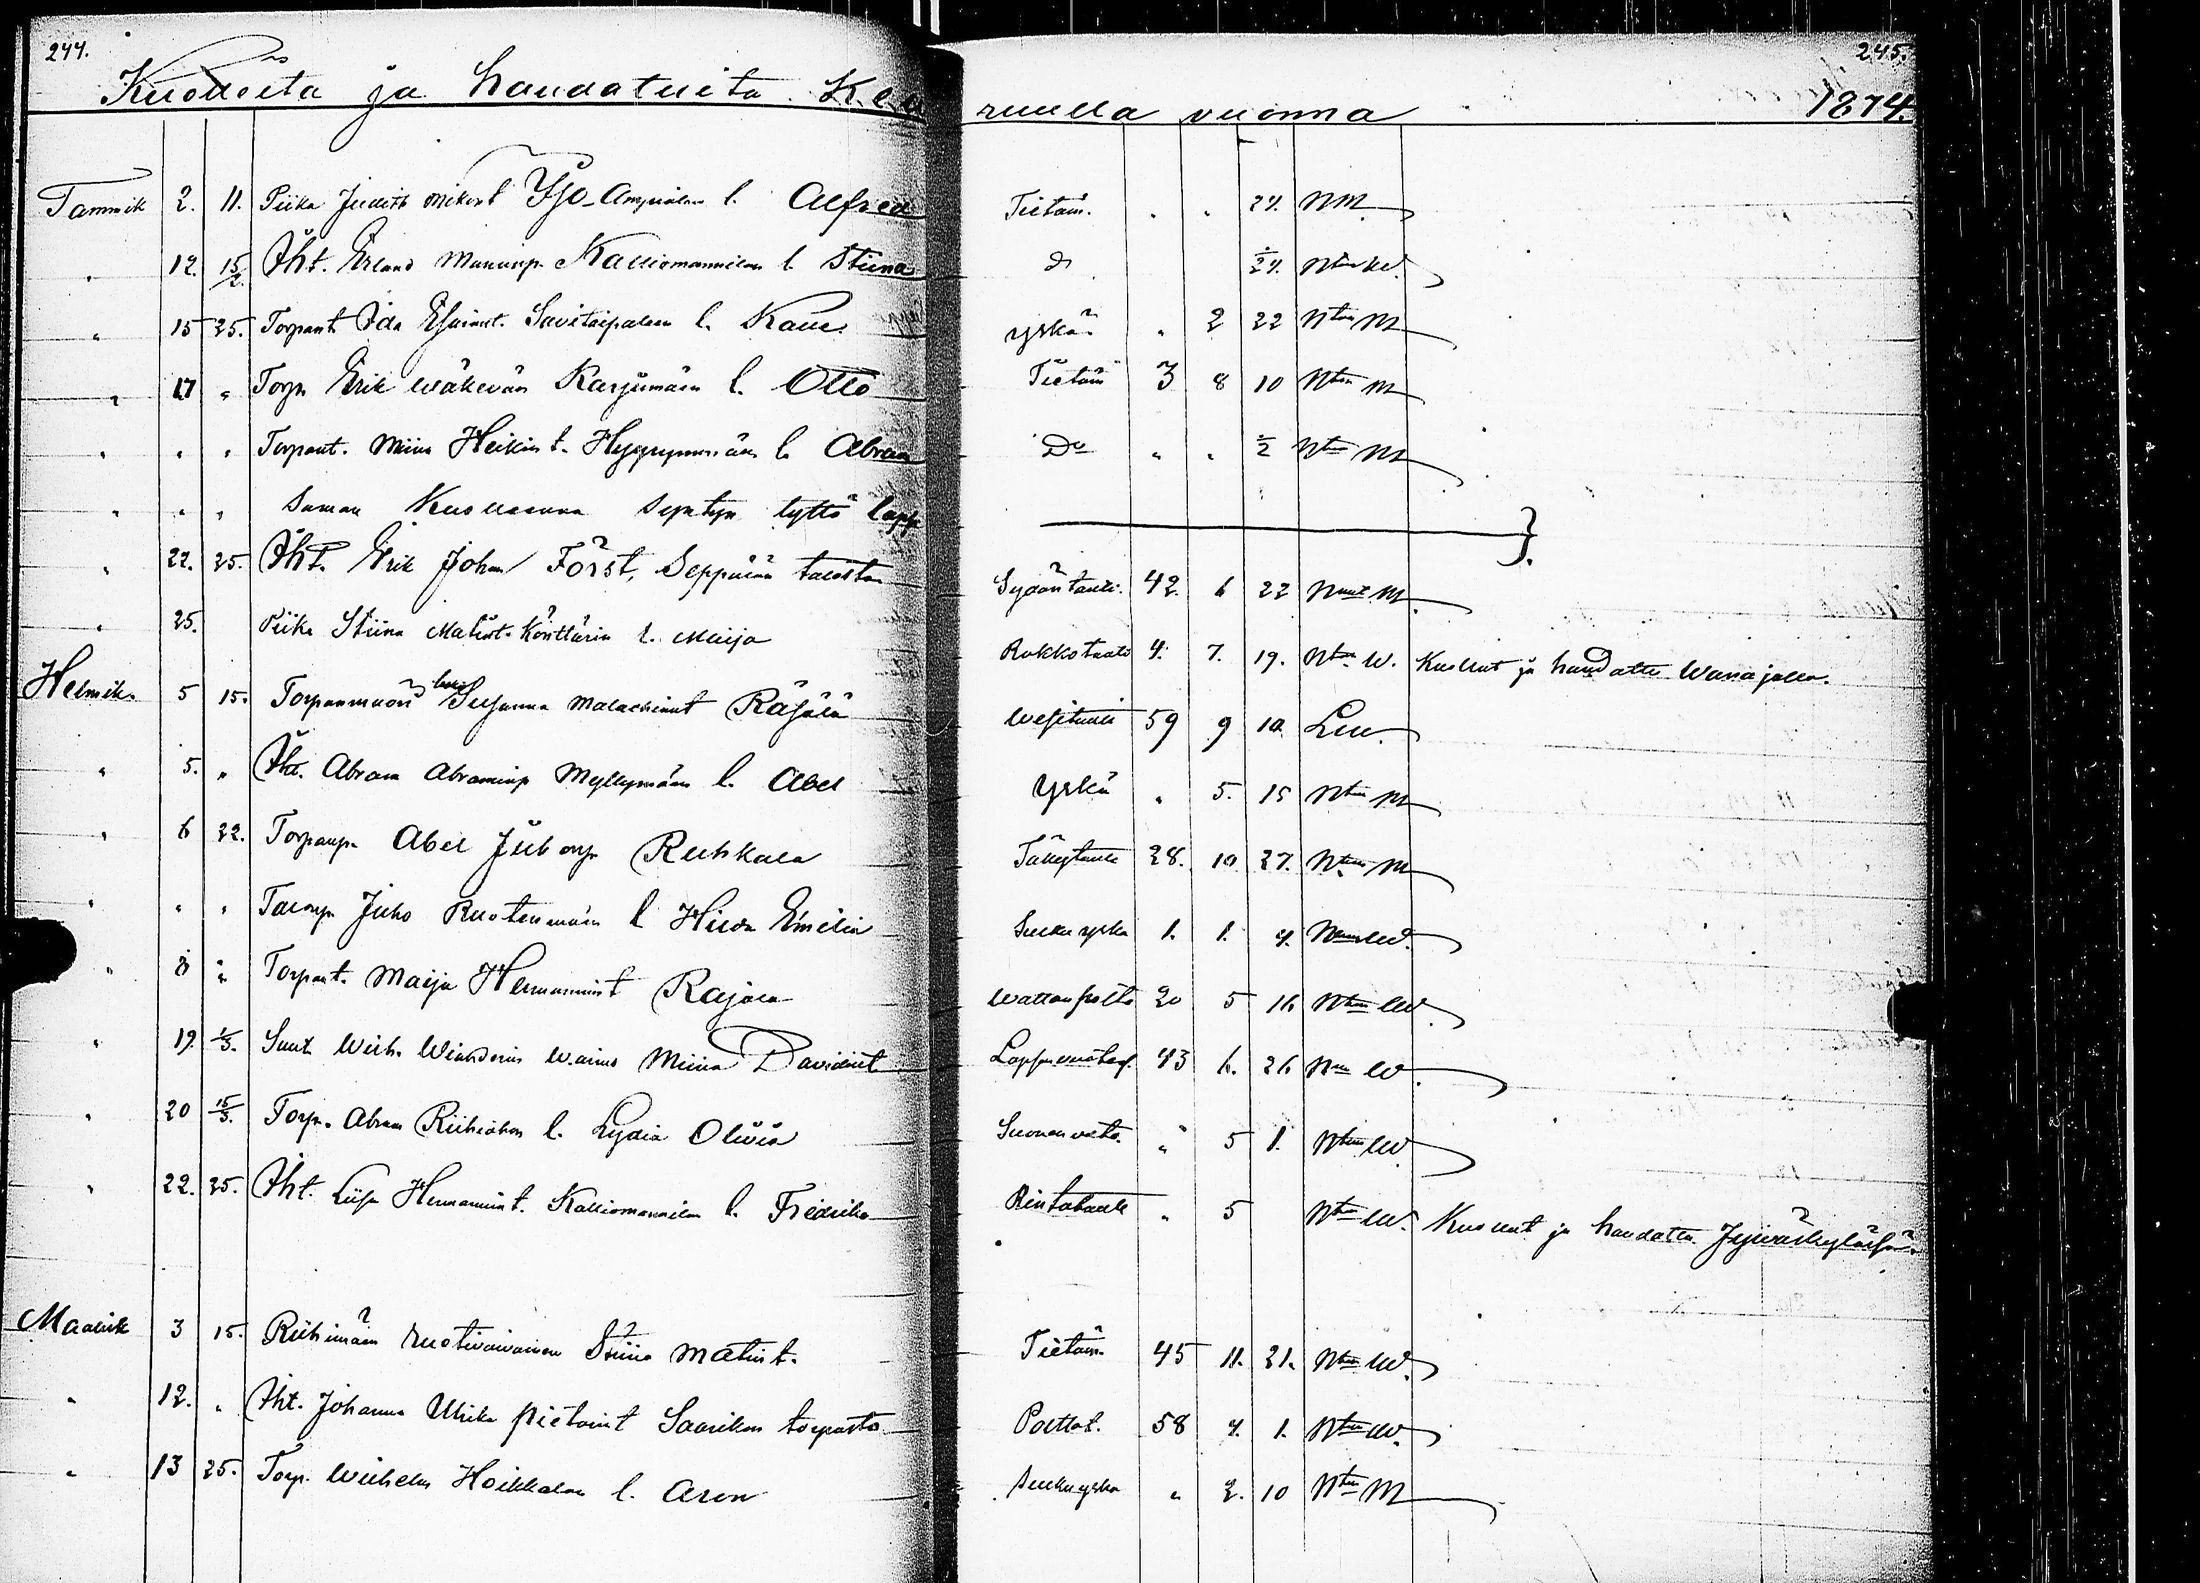 244. 245.
Kuolleita ja haudatuita Keuruulla vuonna 1874.
Tammik 2. 11. Piika Judith Mikont Yso-Ampialan l. Alfred Tietäm. " " 24. NM.
" 12. 15/2. Iht. Erland Mananp. Kalliomannilan l. Stiina D 24. Ntön W.
" 15 25. Torpant Ida Esaiant. Savitaipaleen l. Kalle yskä " 2 22 Ntön M
" 17 " Torp. Erik Wäkevän Karjumäen l. Otto Tietäm 3 8 10 Ntön M
" " " Torpant. Miina Heikint. Hyppysmään l. Abram Do " " 1/2 Ntön M
" " " Saman Kuolleena syntyn tyttö laps
" 22. 25. Iht. Erik Johan Först, Seppälän talosta Sydäntauti. 42. 6 22 Naut M.
" 25. Piika Stiina Matint. Könttärin l. Maija Rokkotauti 4. 7. 19. Ntön W. Kuollut ja haudattu Wanajalla.
Helmik. 5 15. Torpanmuori leski Susanna Malachiant Räjälä Wesitauti 59 9 10 Lew.
" 5. " Iht. Abram Abraminp Myllymäen l. Abel Yskä " 5. 15 Ntön M
" 6 22. Torpanp. Abel Juhonp Ruhkala Täkytauti 28. 10. 27. Ntön M
" " " Talonp Juho Ruotenmäen l Hilda Emelia Sulku yskä 1. 1. 4. W.
" 8 " Torpant. Maija Hermannint Rajala Wattanpolto 20 5 16 Ntön W.
" 19. 1/3. Suut. Wilh. Winderin Waimo Miina Davidint 43 6. 26 Nön W.
" 20 15/3. Torp. Abram Riihiahon l. Lydia Oliwia Suonenveto. " 5 1. Ntön W.
" 22. 25. Iht. Liisa Hermannint. Kalliomannilan l. Fredrika Rintatauti " 5 Ntön W. Kuollut ja haudattu Jyväskylässä.
Maalisk 3 15. Riihimäen ruotivaivainen Stiina Matint. Tietäm. 45 11. 21. Ntön W.
" 12. " Iht. Johanna Ulrika Pietarint Saarikon torpasta Polttot. 58 4. 1. Ntön W.
" 13 25. Torp. Wilhelm Hoikkalan l. Aron Sulkuyskä " 2. 10 Ntön M